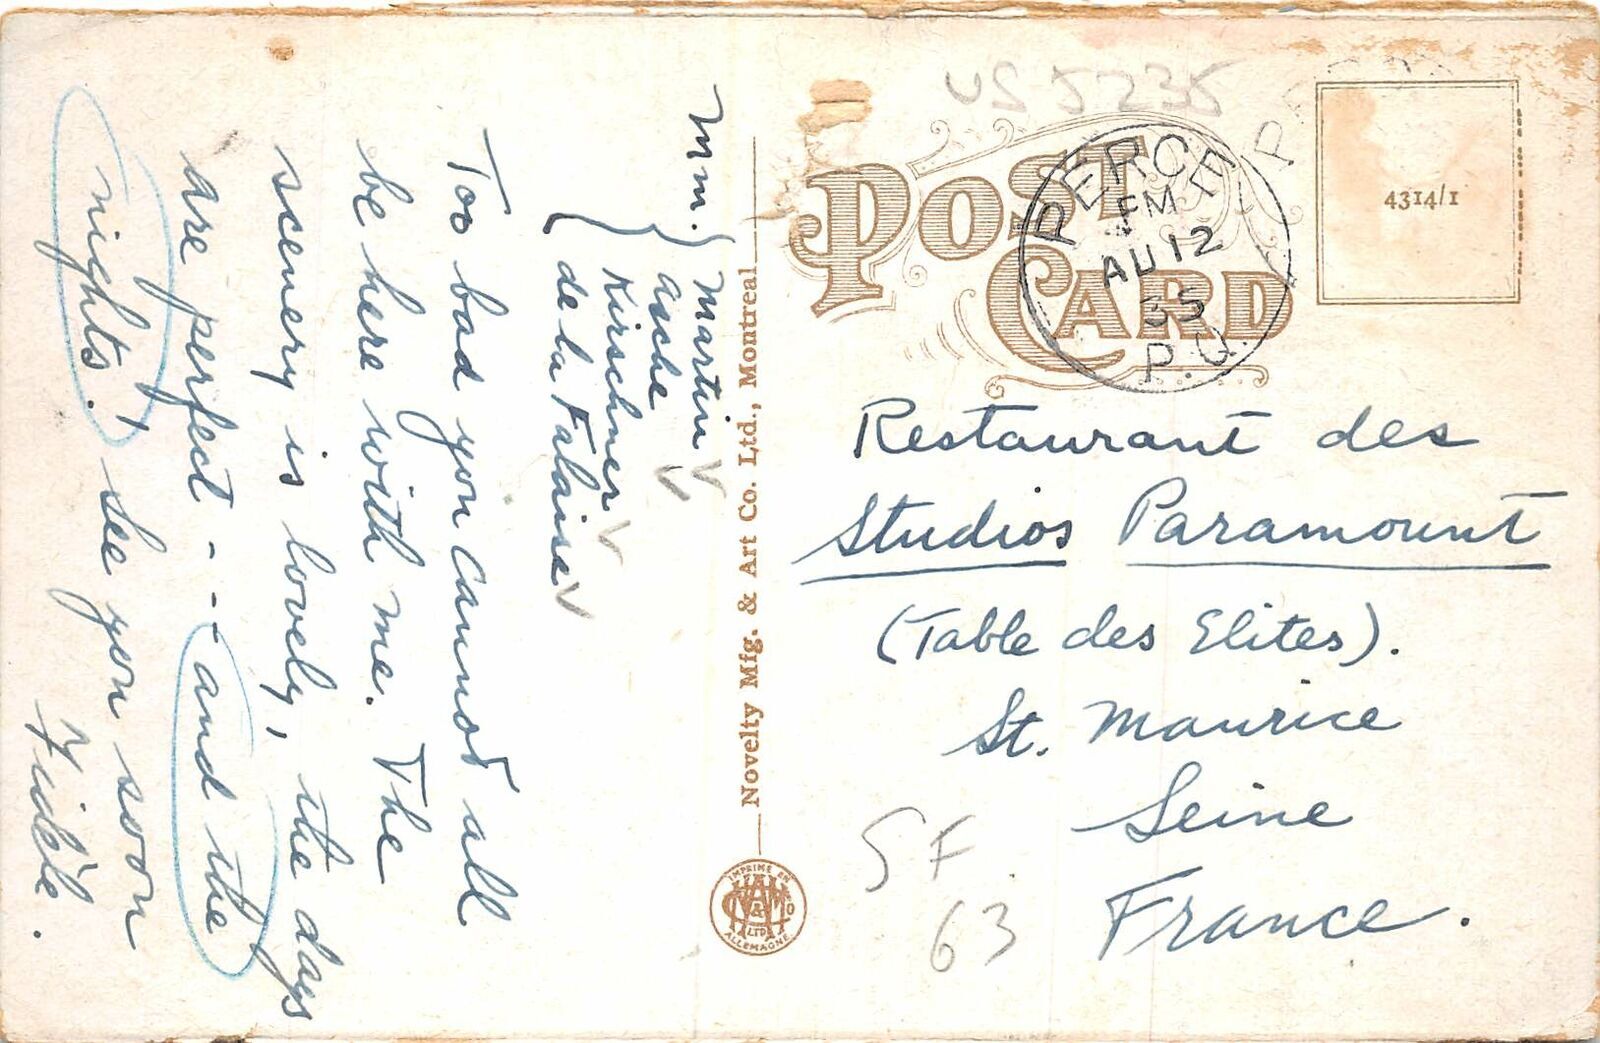 Mm. { Martin
Asche
Kirschner
de la Falaise
Too bad you cannot all
be here with me. The
scenery is lovely, the days
are perfect - - - and the
nights! see you soon
Novelty Mfg. & Art Co. Ltd., Montreal
IMPRIMÉ EN
ALLEMAGNE
LTD
US 5235
POST
CARD
PERCE
PM
AU 12
35
P.Q.
4314/1
Restaurant des
Studios Paramount
(Table des Elites).
St. Maurice
Seine
France.
SF
63